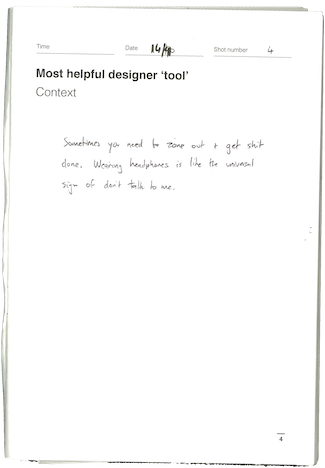 Time Date 14/10 Shot number 4
Most helpful designer ‘tool’
Context
Sometimes you need to zone out + get shit
done. Wearing headphones is like the universal
sign of don't talk to me.
4